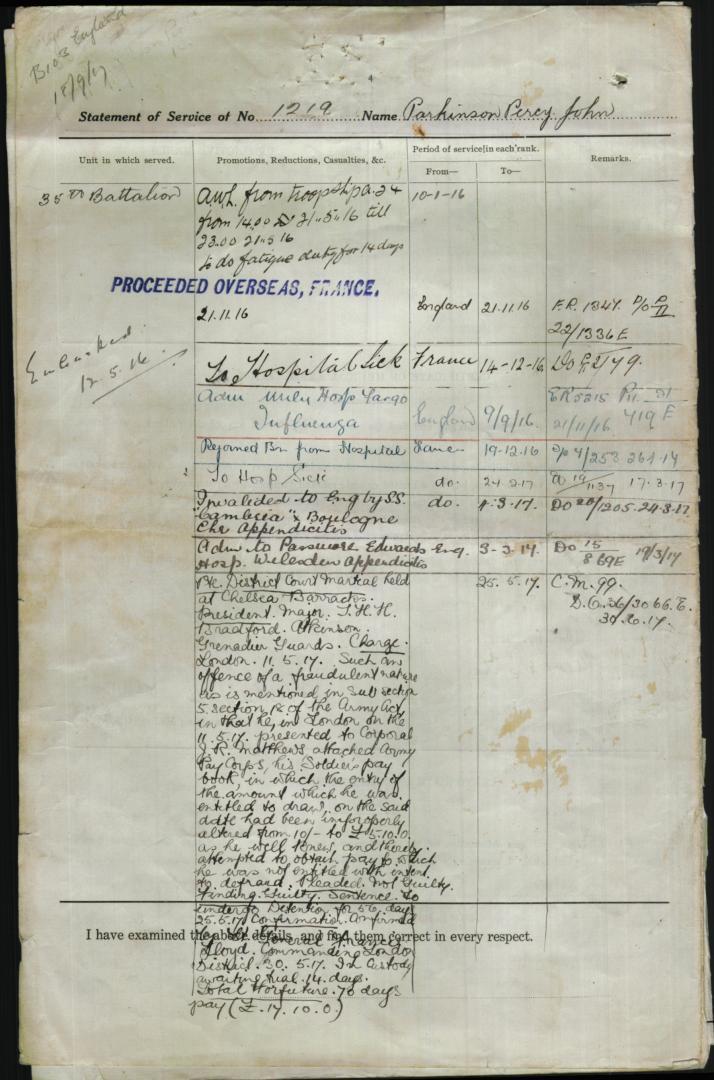 B103 England
18/9/17
Statement of Service of No. 1219 Name Parkinson Percy John
Unit in which served. Promotions, Reductions, Casualties, &c. Period of service in each rank. Remarks.
From— To—
35th Battalion A.W.L. from troopship A.24 10-1-16
from 14.00 21.5.16 till
23.00 21.5.16
to do fatigue duty for 14 days
PROCEEDED OVERSEAS, FRANCE.
21.11.16 England 21.11.16 F.R. 1347.
22/1336E
Embarked.
12.5.16.
To Hospital Sick France 14-12-16 Do 2179.
Adm Mily Hosp Fargo
Influenza England 9/9/16 21/11/16 419 E
Rejoined Bn from Hospital France 19-12-16 4/253 26.1.17
To Hosp Sick do. 24.2.17 19/1137 17.3.17
Invalided to Eng by S.S. do. 1.3.17. Do 20/1205.24.3.17
"Cambria" Boulogne
Chr Appendicitis
Adm to Passmore Edwards Eng. 3-3-17. Do 15/869E 19/3/17
Hosp. Willesden Appendicitis
District Court Martial held 25.5.17. C.M. 99.
at Chelsea Barracks. D.O. 36/3066.E.
President. Major. 30.6.17.
Bradford. Atkinson.
Grenadier Guards. Charge.
London. 11.5.17. Such an
offence of a fraudulent nature
as is mentioned in sub section
5. section 18 of the Army Act,
in that he, in London on the
11.5.17. presented to Corporal
J. R. Matthews attached Army
Pay Corps, his Soldier's pay
book, in which the entry of
the amount which he was
entitled to draw, on the said
date had been improperly
altered from 10/- to £5.10.0.
as he well knew, and thereby
attempted to obtain pay to which
he was not entitled with intent
to defraud. Pleaded. Not Guilty.
Finding. Guilty. Sentence. To
undergo Detention for 56 days
25.5.17. Confirmation. Confirmed
I have examined the above details, and find them correct in every respect.
General Francis
Lloyd. Commanding London
District. 30.5.17. In Custody
awaiting trial. 14 days.
Total Forfeiture. 70 days
pay (£.17.10.0.)